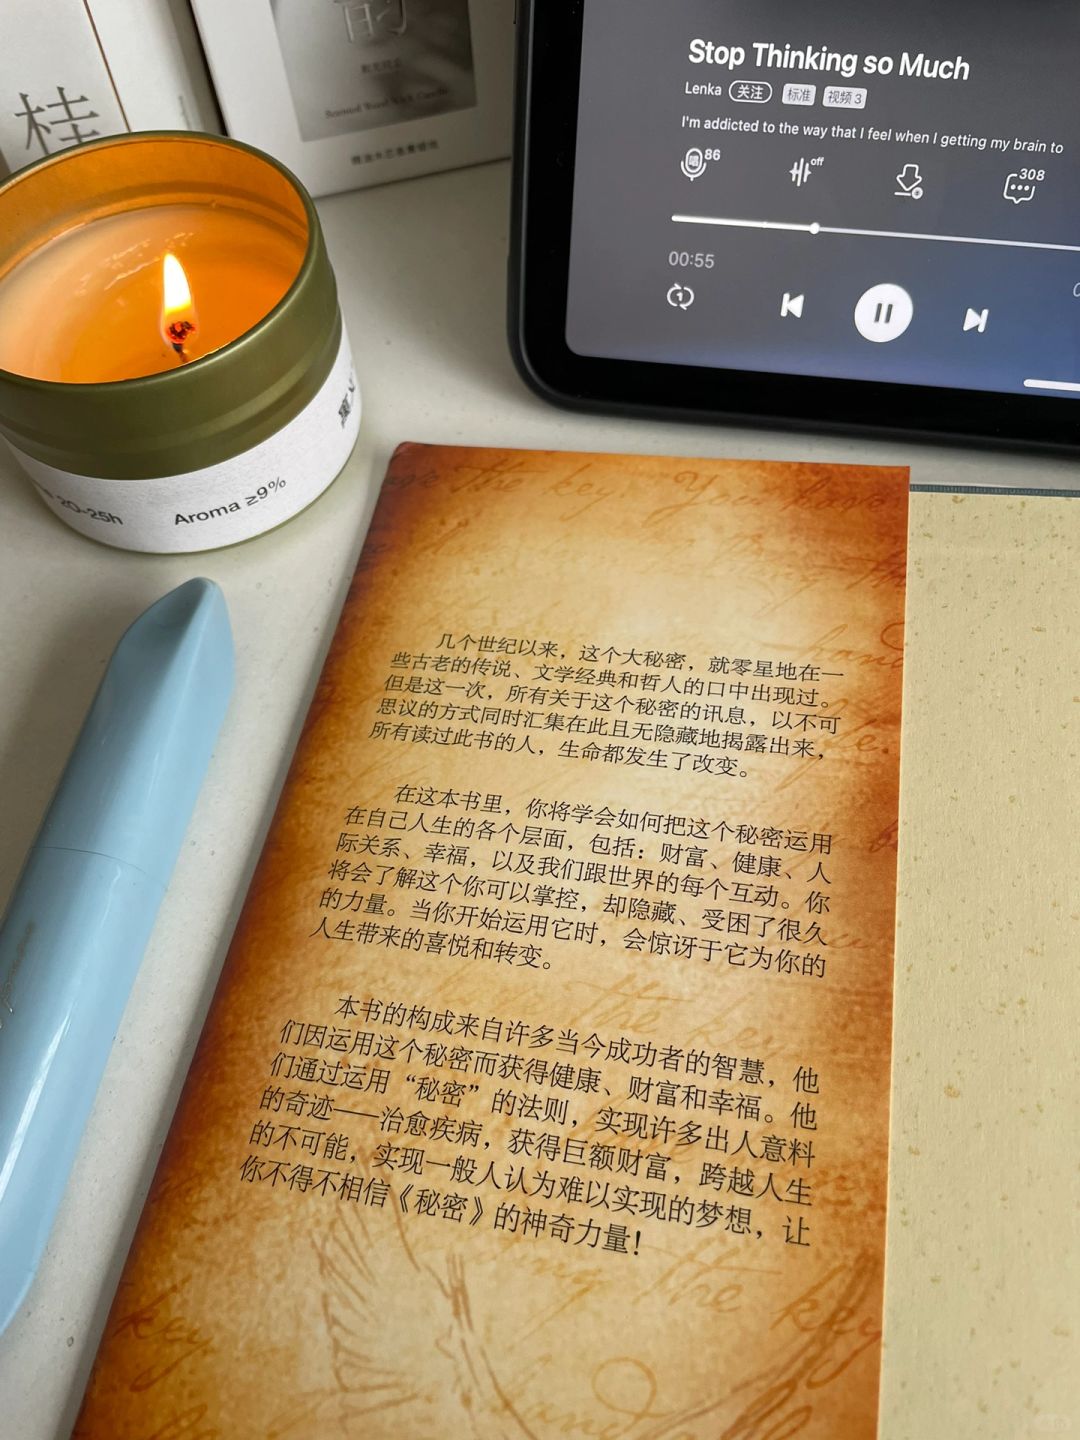 桂
韵
Scented Wood Wick Candle
Stop Thinking so Much
Lenka 关注 标准 视频 3
I'm addicted to the way that I feel when I getting my brain to
86
off
308
00:55
1
20-25h
Aroma ≥9%
几个世纪以来，这个大秘密，就零星地在一
些古老的传说、文学经典和哲人的口中出现过。
但是这一次，所有关于这个秘密的讯息，以不可
思议的方式同时汇集在此且无隐藏地揭露出来，
所有读过此书的人，生命都发生了改变。
在这本书里，你将学会如何把这个秘密运用
在自己人生的各个层面，包括：财富、健康、人
际关系、幸福，以及我们跟世界的每个互动。你
将会了解这个你可以掌控，却隐藏、受困了很久
的力量。当你开始运用它时，会惊讶于它为你的
人生带来的喜悦和转变。
本书的构成来自许多当今成功者的智慧，他
们因运用这个秘密而获得健康、财富和幸福。他
们通过运用“秘密”的法则，实现许多出人意料
的奇迹——治愈疾病，获得巨额财富，跨越人生
的不可能，实现一般人认为难以实现的梦想，让
你不得不相信《秘密》的神奇力量！